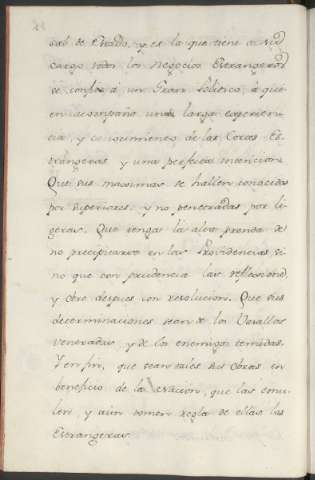 sal de Estado, y es la que tiene a su
cargo todos los negocios Estrangeros
se confie á un Gran Politico, á quien
acompañe una larga experien
cia, y conocimiento de las Cortes Es
trangeras y una perfecta intencion.
Que sus maximas se hallen conocidas
por superiores, y no penetradas por li
geras. Que tenga la alta prenda de
no precipitarse en las Providencias si
no que con prudencia las reflexione,
y obre despues con resolucion. Que sus
determinaciones sean de los Vasallos
veneradas, y de los enemigos temidas.
Y en fin, que sean tales sus obras en
beneficio de la Nacion, que las emu
len, y aun tomen regla de ellas las
Estrangeras.